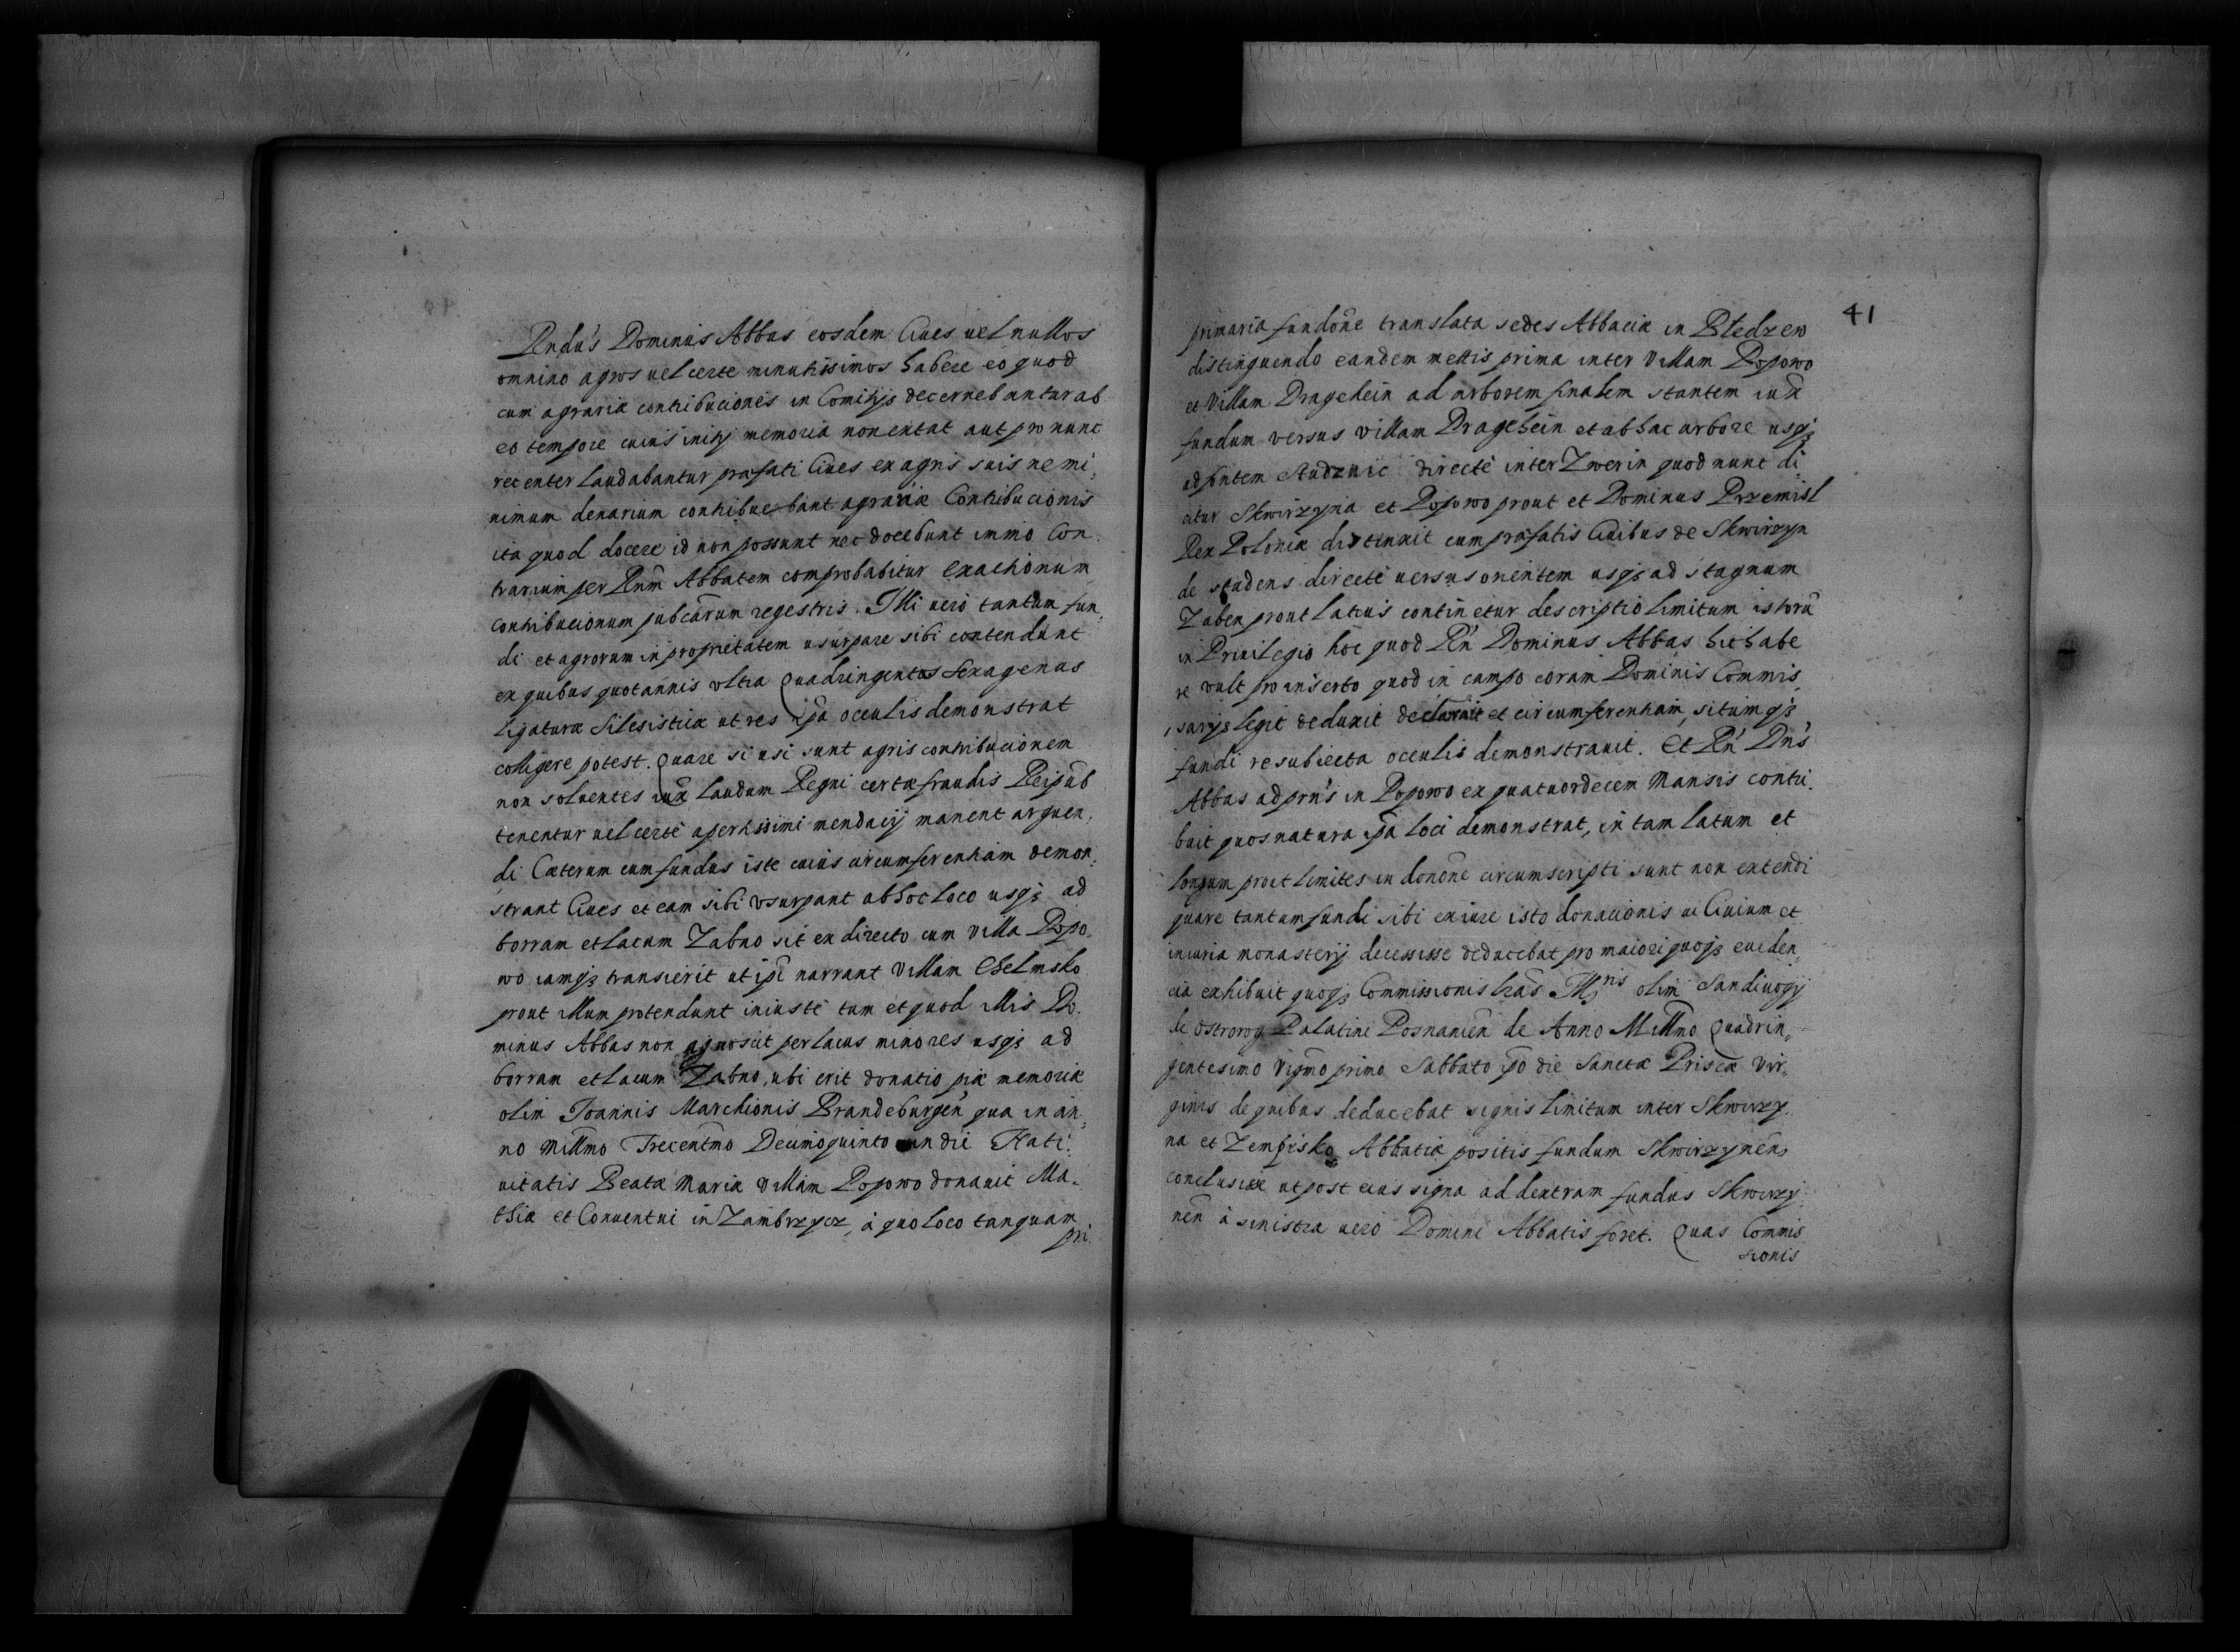 Rndus Dominus Abbas eosdem Ciues uel nullos
omnino agros uel certe minutissimos habere eo quod
cum agrariæ contribuciones in Comitijs decernebantur ab
eo tempore cuius initij memoria non extat aut pro nunc
recenter laudabantur præfati Ciues ex agris suis ne mi,
nimum denarium contribuebant agrariæ Contribucionis
ita quod docere id non possunt nec docebunt immo Con.
trarium per Rnm Abbatem comprobabitur exactionum
contribucionum pubcarum regestris. Illi uero tantum fun,
di et agrorum in proprietatem usurpare sibi contendunt
ex quibus quotannis vltra Quadringentas sexagenas
ligaturæ Silesisticæ ut res ipa occulis demonstrat
colligere potest. Quare si usi sunt agris contribucionem
non soluentes iux laudum Regni certæ fraudis Reipub
tenentur uel certe apertissimi mendacij manent arguen,
di Cæterum cum fundus iste cuius circumferentiam demon,
strant Ciues et eam sibi vsurpant ab hoc loco usq3 ad
borram et lacum Zabno sit ex directo cum villa Popo,
wo iamq3 transierit ut ipi narrant villam Chelmsko
prout illum protendunt iniuste tum et quod illis Do.
minus Abbas non agnoscit per lacus minores usq3 ad
borram et lacum Zabno, ubi erit donatio piæ memoriæ
olim Joannis Marchionis Brandeburgen qua in an,
no Millmo Trecentmo Decimoquinto in die Nati,
uitatis Beatæ Mariæ villam Popowo donauit Ma,
thiæ et Conuentui in Zambrzycz, à quo loco tanquam
pri
41
primaria fundone translata sedes Abbaciæ in Bledzew
distinguendo eandem mettis prima inter villam Popowo
et villam Dragehein ad arborem finalem stantem iux
fundum versus villam Dragehein et ab hac arbore usq3
ad fontem Studznic directe inter Zwerin quod nunc di
citur Skwirzyna et Popowo prout et Dominus Przemisl
Rex Poloniæ distinxit cum præfatis Ciuibus de Skwirzyn
de studens directe uersus orientem usq3 ad stagnum
Zaben prout latius continetur descriptio limitum istoru
in Priuilegio hoc quod Rn Dominus Abbas hic habe
re vult pro inserto quod in campo coram Dominis Commis,
sarijs legit deduxit declarauit et circumferentiam, situmq3
fundi re subiecta occulis demonstrauit. Et Rn Dns
Abbas ad prns in Popowo ex quatuordecem Mansis contri,
buit quos natura ipa loci demonstrat, in tam latum et
longum prout limites in donone circumscripti sunt non extendi
quare tantum fundi sibi ex iure isto donacionis ui Ciuium et
iniuria monasterij decessisse deducebat pro maiori quoq3 euiden,
cia exhibuit quoq3 Commissionis lras Mris olim Sandiuogij
de Ostrorog Palatini Posnanien de Anno Millmo Quadrin,
gentesimo Vigmo primo Sabbato ipo die Sanctæ Priscæ Vir,
ginis de quibus deducebat signis limitum inter Skwirzy,
na et Zempisko Abbatiæ positis fundum Skwirzynen
conclusisse ut post eius signa ad dextram fundus Skwirzy,
nen à sinistra uero Domini Abbatis foret. Quas Commis
sionis